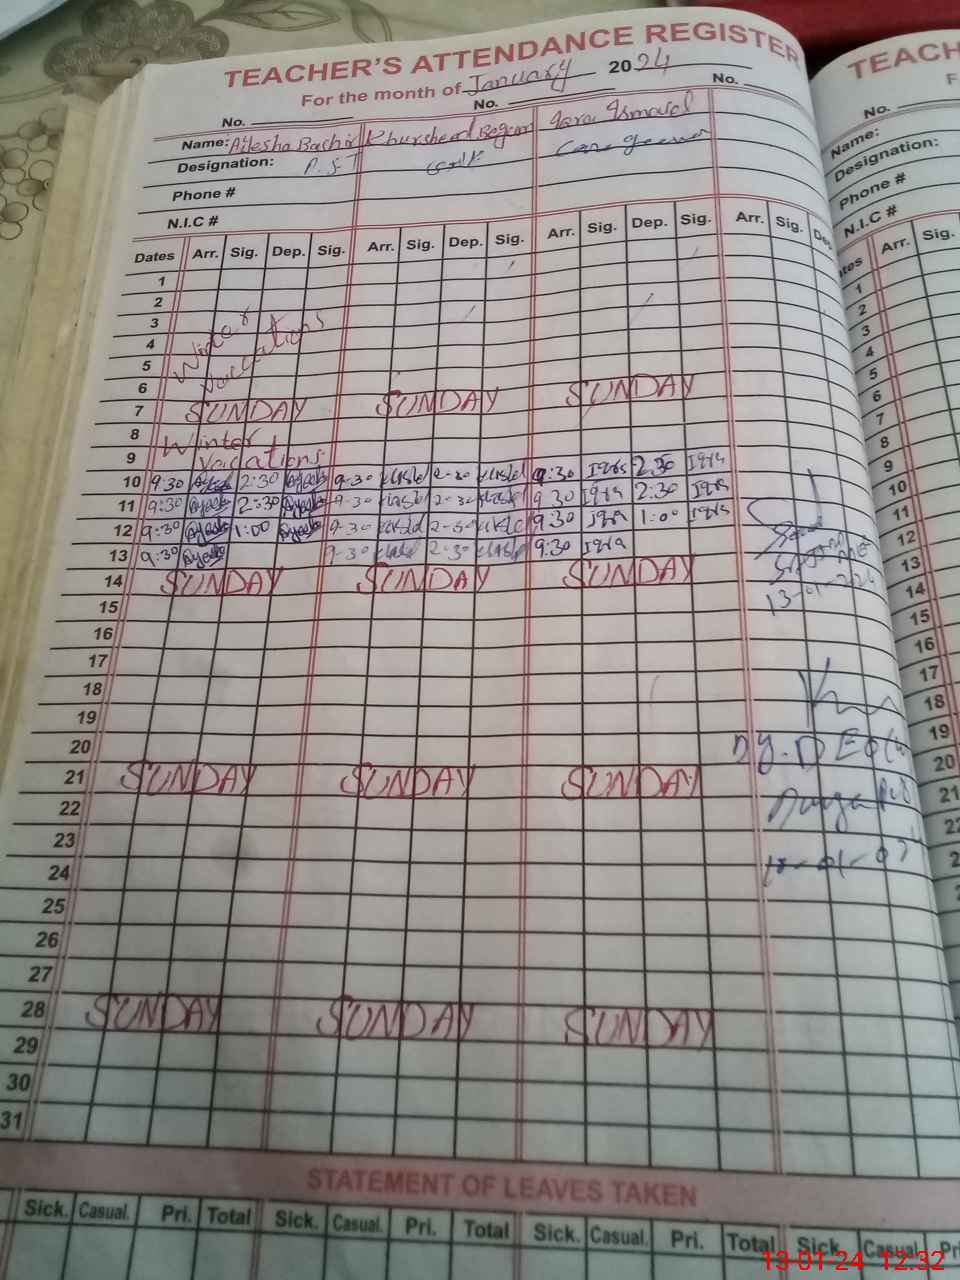 TEACHER'S ATTENDANCE REGISTER
For the month of January 2024
No. No. No.
Name: Ailesha Bashir Khursheed Begum Iqra Ismail
Designation: P.S.T Care giver
Phone #
N.I.C #
Dates Arr. Sig. Dep. Sig. Arr. Sig. Dep. Sig. Arr. Sig. Dep. Sig. Arr. Sig.
1
2
3
4 Winter
5 Vaccations
6
7 SUNDAY SUNDAY SUNDAY
8 Winter
9 Vaccations
10 9:30 2:30 9-30 2-30 9:30 Iqra 2:30 Iqra
11 9:30 2:30 9-30 2-30 9:30 Iqra 2:30 Iqra
12 9:30 1:00 9-30 2-30 9:30 Iqra 1:00 Iqra
13 9:30 9-30 2-30 9:30 Iqra
14 SUNDAY SUNDAY SUNDAY
15
16
17
18
19
20
21 SUNDAY SUNDAY SUNDAY
22
23
24
25
26
27
28 SUNDAY SUNDAY SUNDAY
29
30
31
Dy. DEO
STATEMENT OF LEAVES TAKEN
Sick. Casual. Pri. Total Sick. Casual. Pri. Total Sick. Casual. Pri. Total Sick. Casual. Pri
TEACH
No.
Name:
Designation:
Phone #
N.I.C #
Arr. Sig.
1
2
3
4
5
6
7
8
9
10
11
12
13
14
15
16
17
18
19
20
21
22
13-01-24 12:32